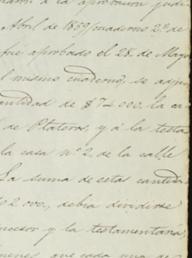 á la aprobacion judi
Abril de 1889 (cuaderno 2º de
fué aprobado el 28 de Mayo
l mismo cuaderno, se adju
antidad de $72.000 la ca
de Plateros, y á la testa
la casa nº 2 de la calle
La suma de estas cantida
02.000, debia dividirse
ecesor y la testamentaria,
cada una de